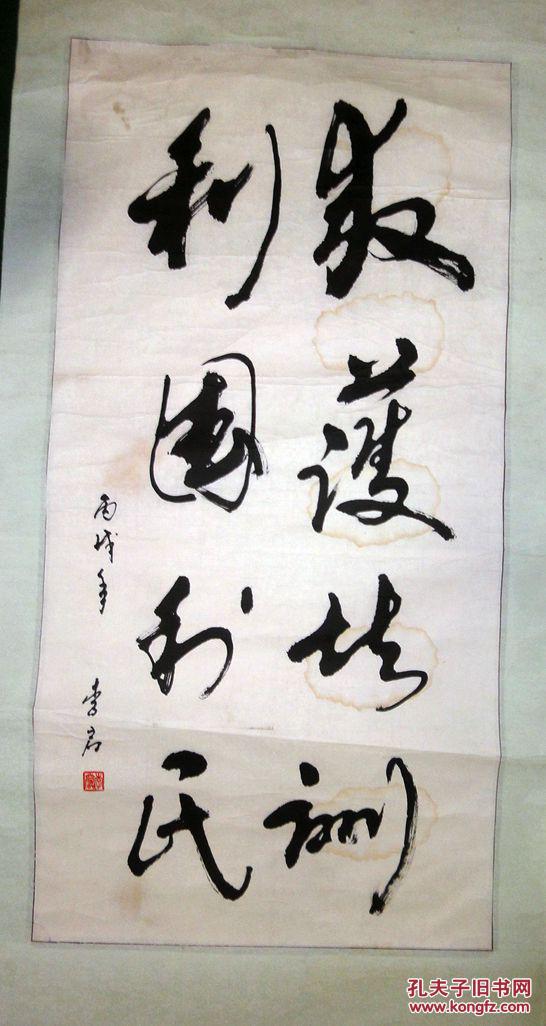 救護培訓
利國利民
丙戌年 李君
孔夫子旧书网
www.kongfz.com